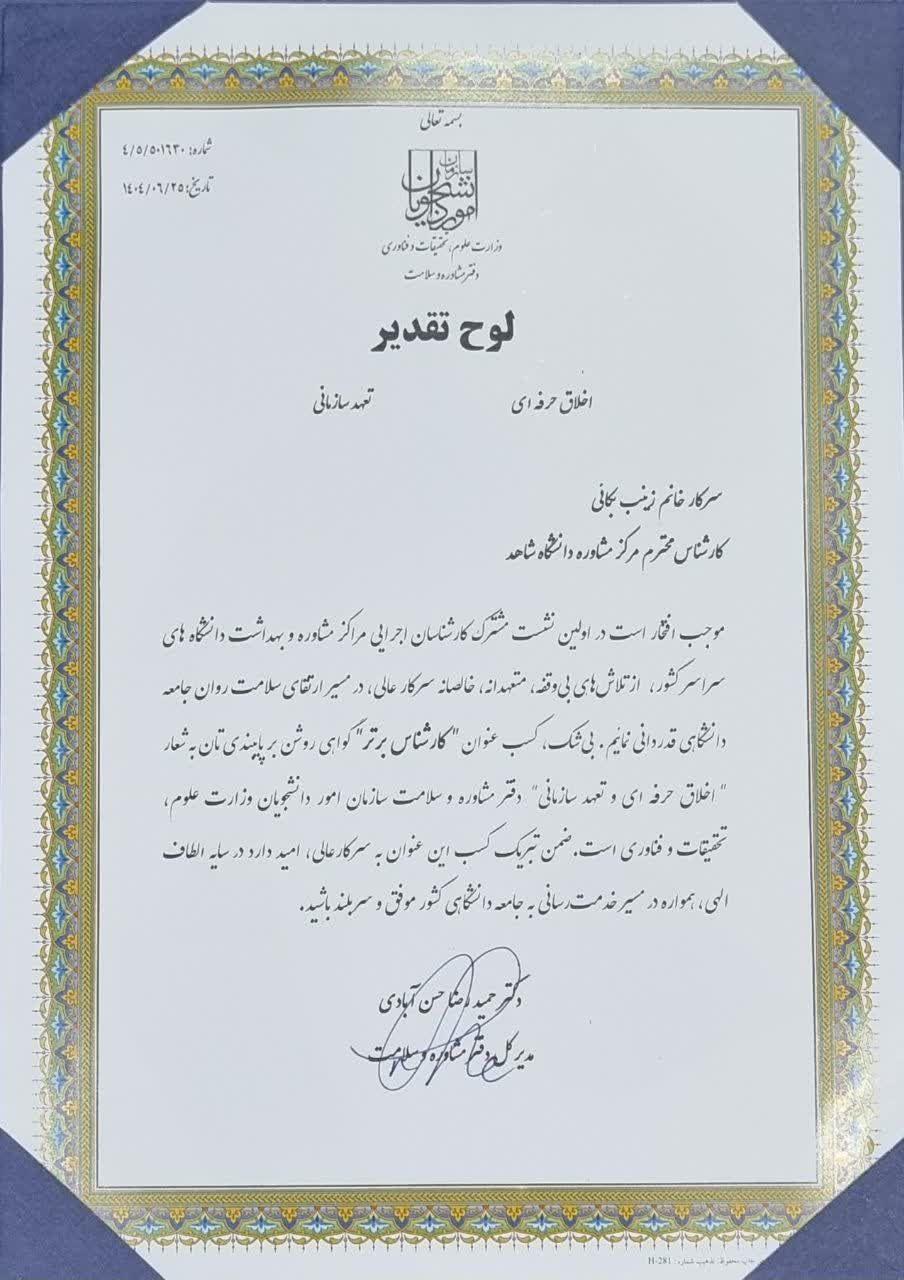 بسمه تعالی
شماره: ۴/۵/۵۰۱۶۳۰
تاریخ: ۱۴۰۴/۰۶/۲۵
سازمان امور دانشجویان
وزارت علوم، تحقیقات و فناوری
دفتر مشاوره و سلامت
لوح تقدیر
اخلاق حرفه ای تعهد سازمانی
سرکار خانم زینب بکائی
کارشناس محترم مرکز مشاوره دانشگاه شاهد
موجب افتخار است در اولین نشست مشترک کارشناسان اجرایی مراکز مشاوره و بهداشت دانشگاه های
سراسر کشور، از تلاش‌های بی‌وقفه، متعهدانه، خالصانه سرکار عالی، در مسیر ارتقای سلامت روان جامعه
دانشگاهی قدردانی نمائیم. بی‌شک، کسب عنوان "کارشناس برتر" گواهی روشن بر پایبندی تان به شعار
"اخلاق حرفه ای و تعهد سازمانی" دفتر مشاوره و سلامت سازمان امور دانشجویان وزارت علوم،
تحقیقات و فناوری است. ضمن تبریک کسب این عنوان به سرکارعالی، امید دارد در سایه الطاف
الهی، همواره در مسیر خدمت‌رسانی به جامعه دانشگاهی کشور موفق و سربلند باشید.
دکتر حمید رضا حسن آبادی
مدیر کل دفتر مشاوره و سلامت
چاپ محفوظ: تذهیب شماره: H-281